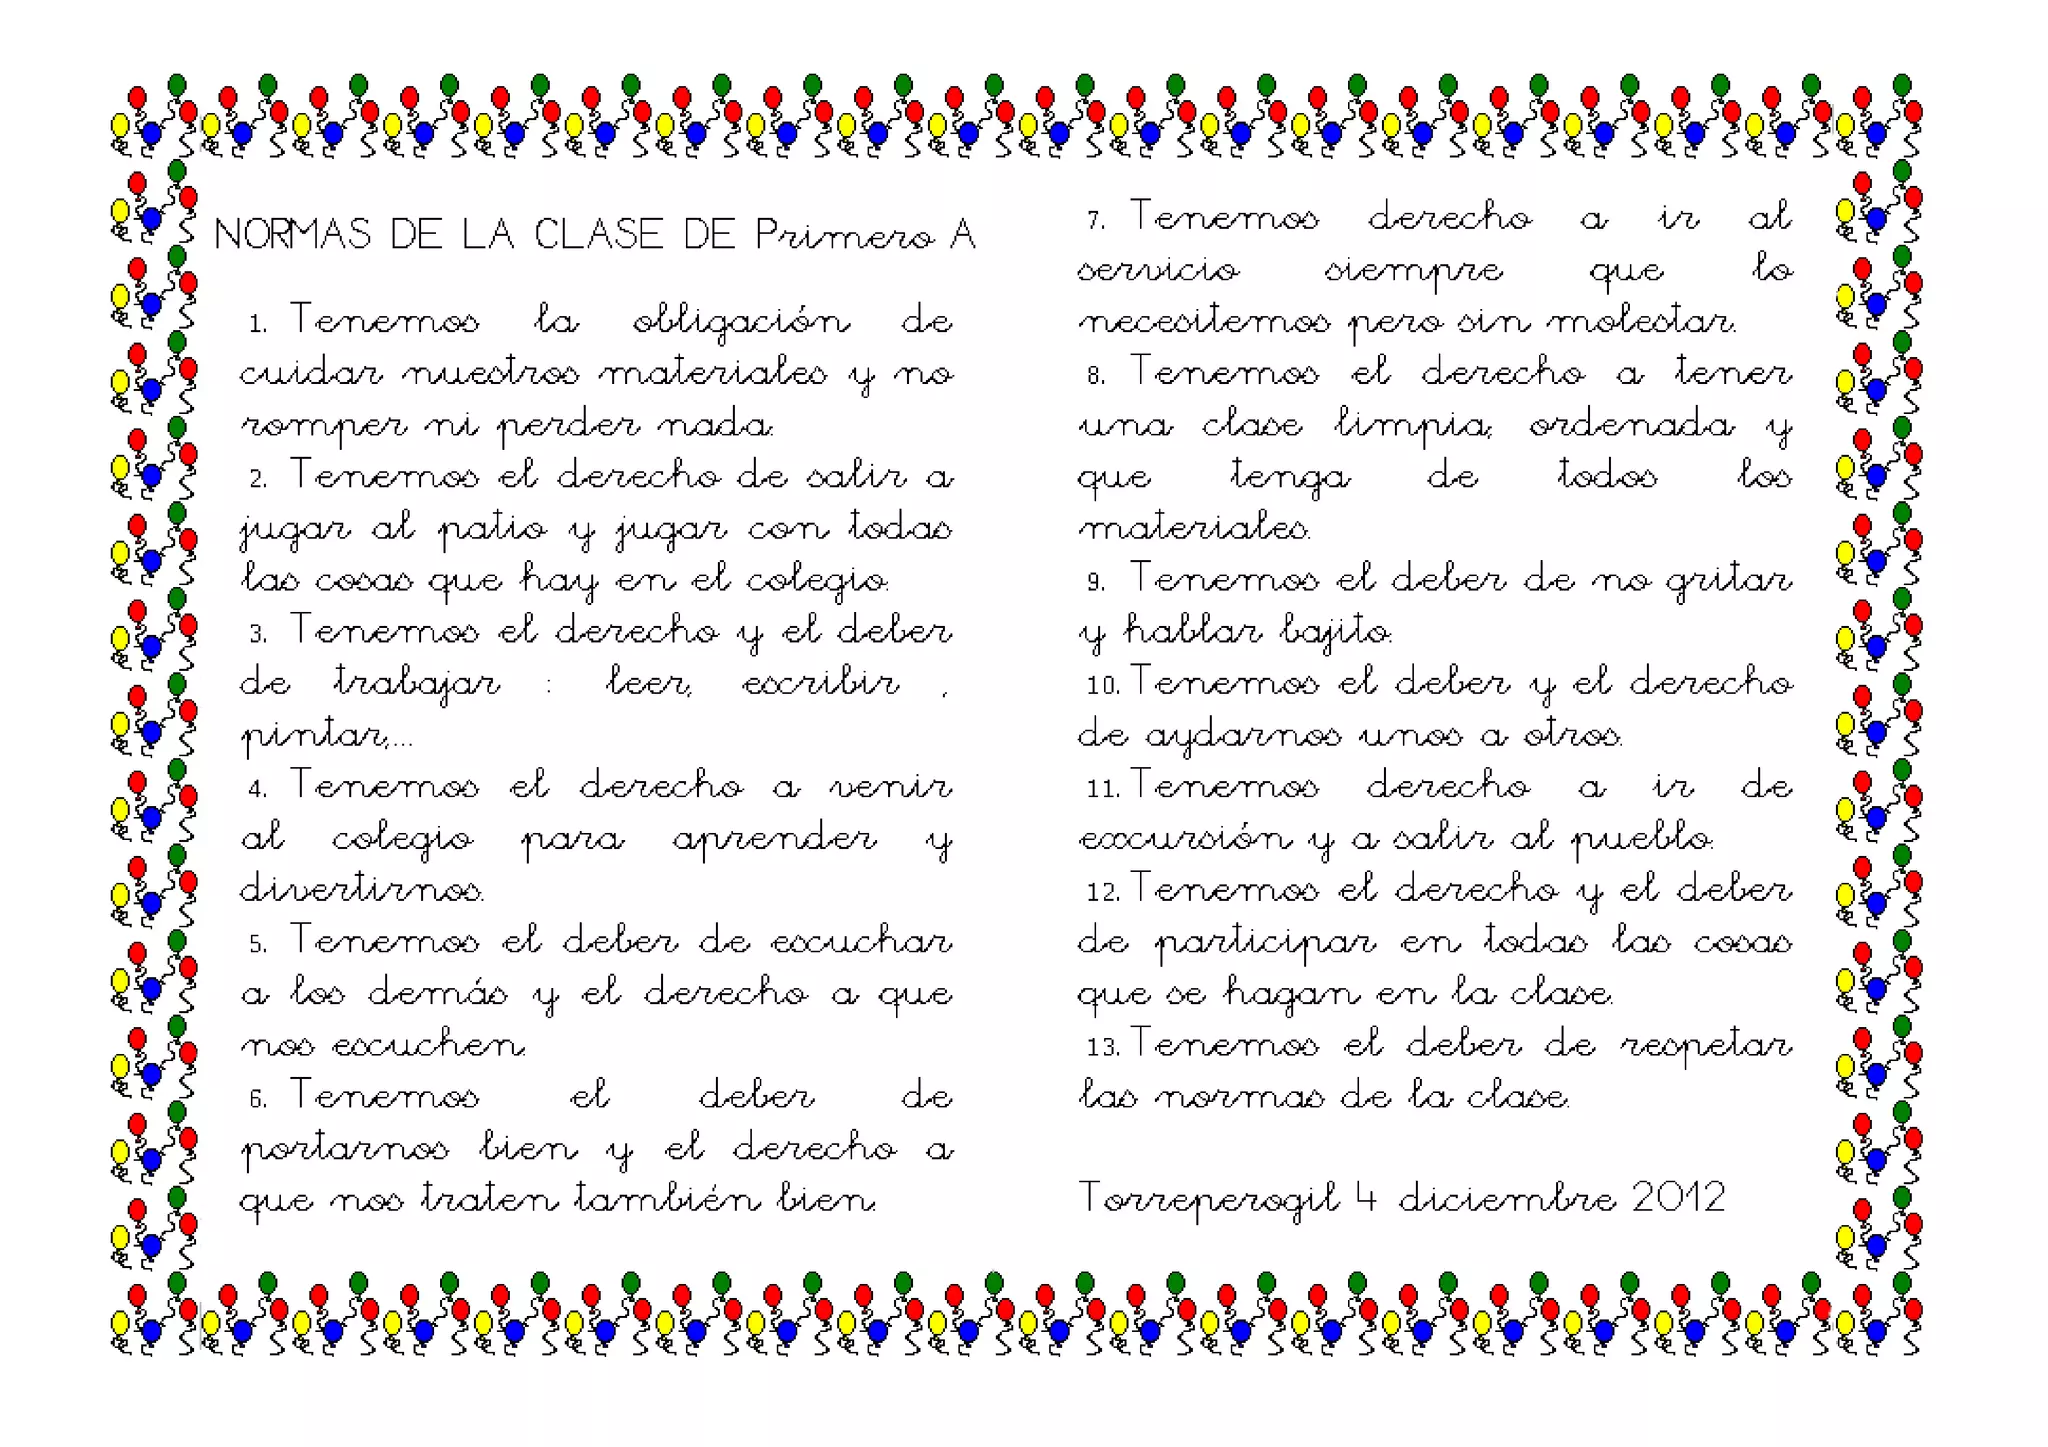 NORMAS DE LA CLASE DE Primero A
1. Tenemos la obligación de
cuidar nuestros materiales y no
romper ni perder nada.
2. Tenemos el derecho de salir a
jugar al patio y jugar con todas
las cosas que hay en el colegio.
3. Tenemos el derecho y el deber
de trabajar : leer, escribir ,
pintar,...
4. Tenemos el derecho a venir
al colegio para aprender y
divertirnos.
5. Tenemos el deber de escuchar
a los demás y el derecho a que
nos escuchen.
6. Tenemos el deber de
portarnos bien y el derecho a
que nos traten también bien.
7. Tenemos derecho a ir al
servicio siempre que lo
necesitemos pero sin molestar.
8. Tenemos el derecho a tener
una clase limpia, ordenada y
que tenga de todos los
materiales.
9. Tenemos el deber de no gritar
y hablar bajito.
10. Tenemos el deber y el derecho
de aydarnos unos a otros.
11. Tenemos derecho a ir de
excursión y a salir al pueblo.
12. Tenemos el derecho y el deber
de participar en todas las cosas
que se hagan en la clase.
13. Tenemos el deber de respetar
las normas de la clase.
Torreperogil 4 diciembre 2012